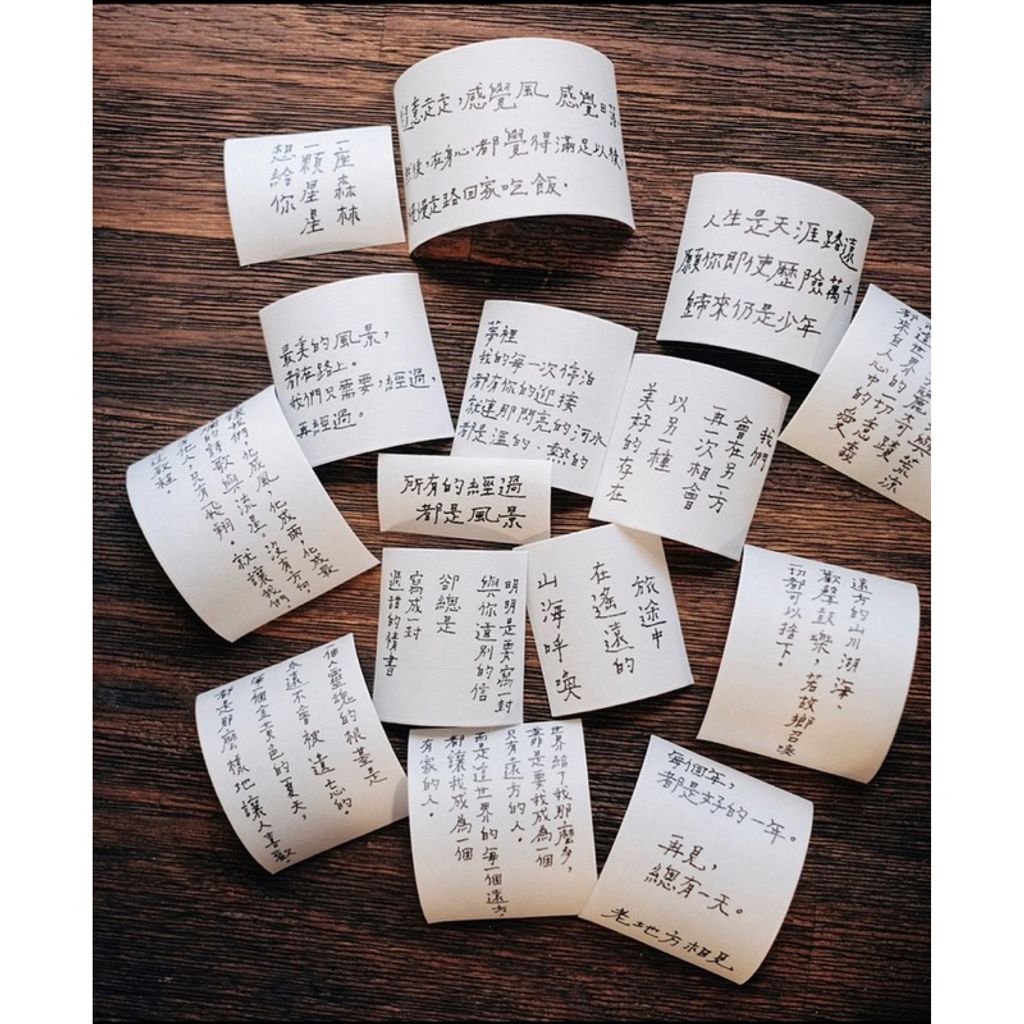 隨意走走，感覺風 感覺日落
然後，在身心都覺得滿足以後，
慢慢走路回家吃飯.
一座森林
一顆星星
想給你
人生是天涯路遠
願你即使歷險萬千
歸來仍是少年
最美的風景，
都在路上。
我們只需要，經過，
再經過。
夢裡
我的每一次停泊
都有你的迎接
就連那閃亮的河水
都是溫的、熱的
我們
會在另一方
再一次相會
以另一種
美好的存在
這世界的麗奇與荒涼
都來自人心中的一切悉緩
的愛義
讓我們化成風，化成雨，化成
的詩歌與流星。沒有方向，
化人，只有飛翔。就讓我們，
所有的經過
都是風景
明明是要寫一封
與你道別的信
卻總是
寫成一封
過諳的情書
旅途中
在遙遠的
山海呼喚
遠方的山川湖海、
歡聲鼓樂，若故鄉召喚
一切都可以捨下。
一個人靈魂的根基是
永遠不會被遺忘的.
每一個金黃色的夏天，
都是那麼樣地讓人喜歡.
世界給了我那麼多，
若那是要我成為一個
只有遠方的人.
而是這世界的每一個遠方，
都讓我成為一個
有家的人.
每個年，
都是好的一年。
再見，
總有一天。
老地方相見